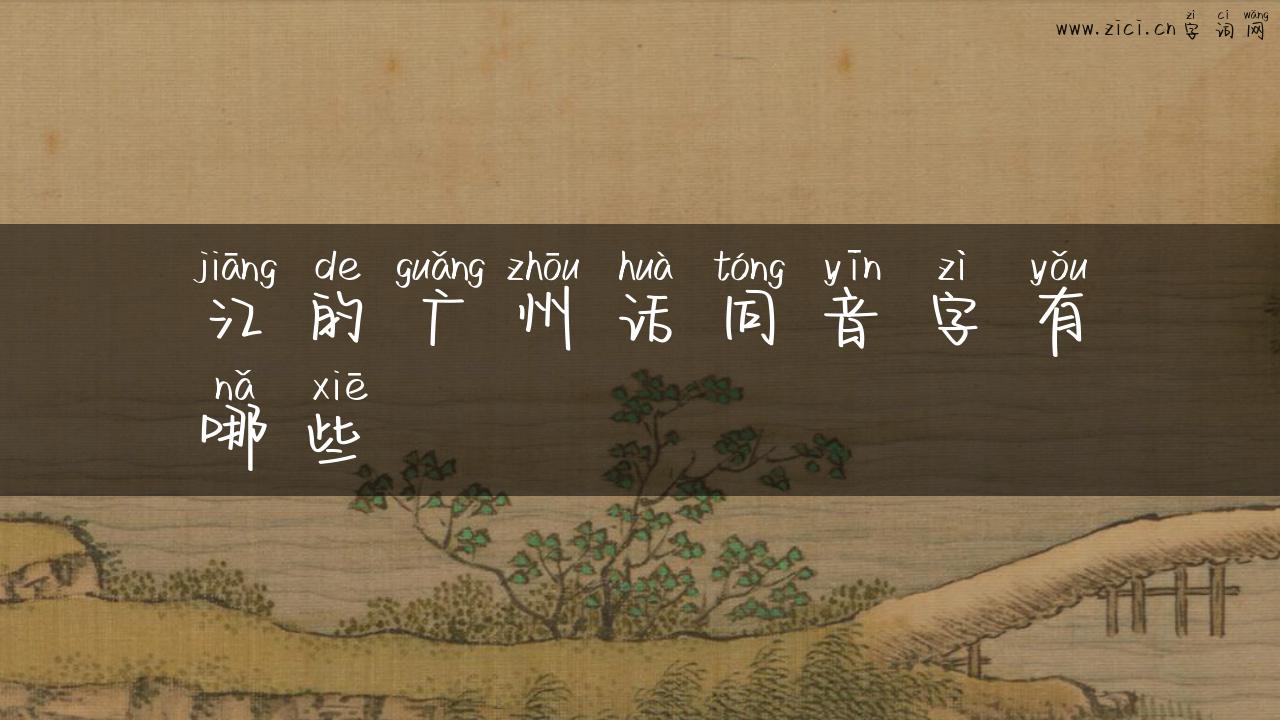 zì cí wǎng
www.zici.cn 字词网
jiāng de guǎng zhōu huà tóng yīn zì yǒu
江的广州话同音字有
nǎ xiē
哪些